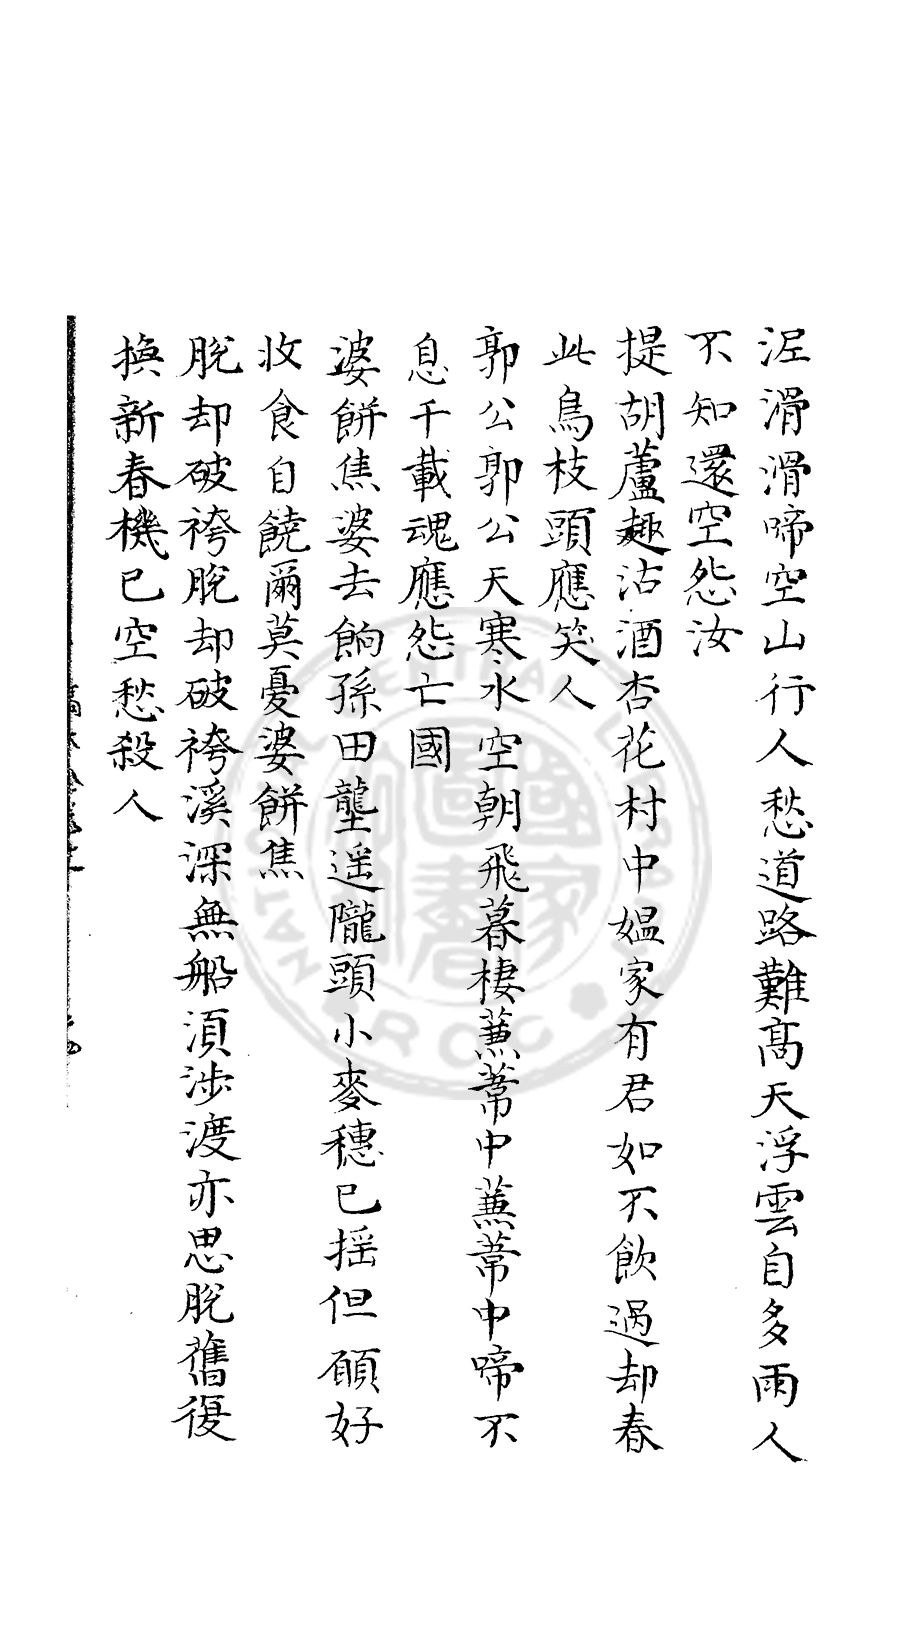 泥滑滑啼空山行人愁道路難高天浮雲自多雨人
不知還空怨汝
提胡蘆趣沽酒杏花村中媼家有君如不飲過却春
此鳥枝頭應笑人
郭公郭公天寒水空朝飛暮棲蒹葦中蒹葦中啼不
息千載魂應怨亡國
婆餅焦婆去餉孫田壟遥隴頭小麥穗已揺但願好
收食自饒爾莫憂婆餅焦
脫却破袴脫却破袴溪深無船湏涉渡亦思脫舊復
換新春機已空愁殺人
NATIONAL CENTRAL LIBRARY
R.O.C.
國家圖書館